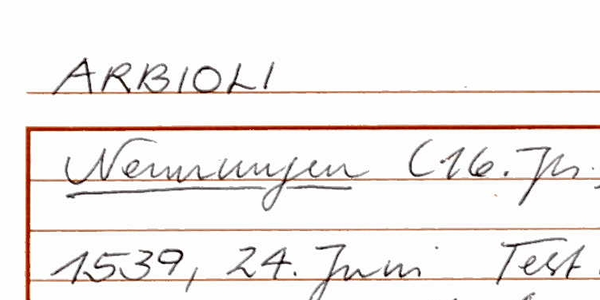 ARBIOLI
Nennungen (16. Jh.
1539, 24. Juni Test.